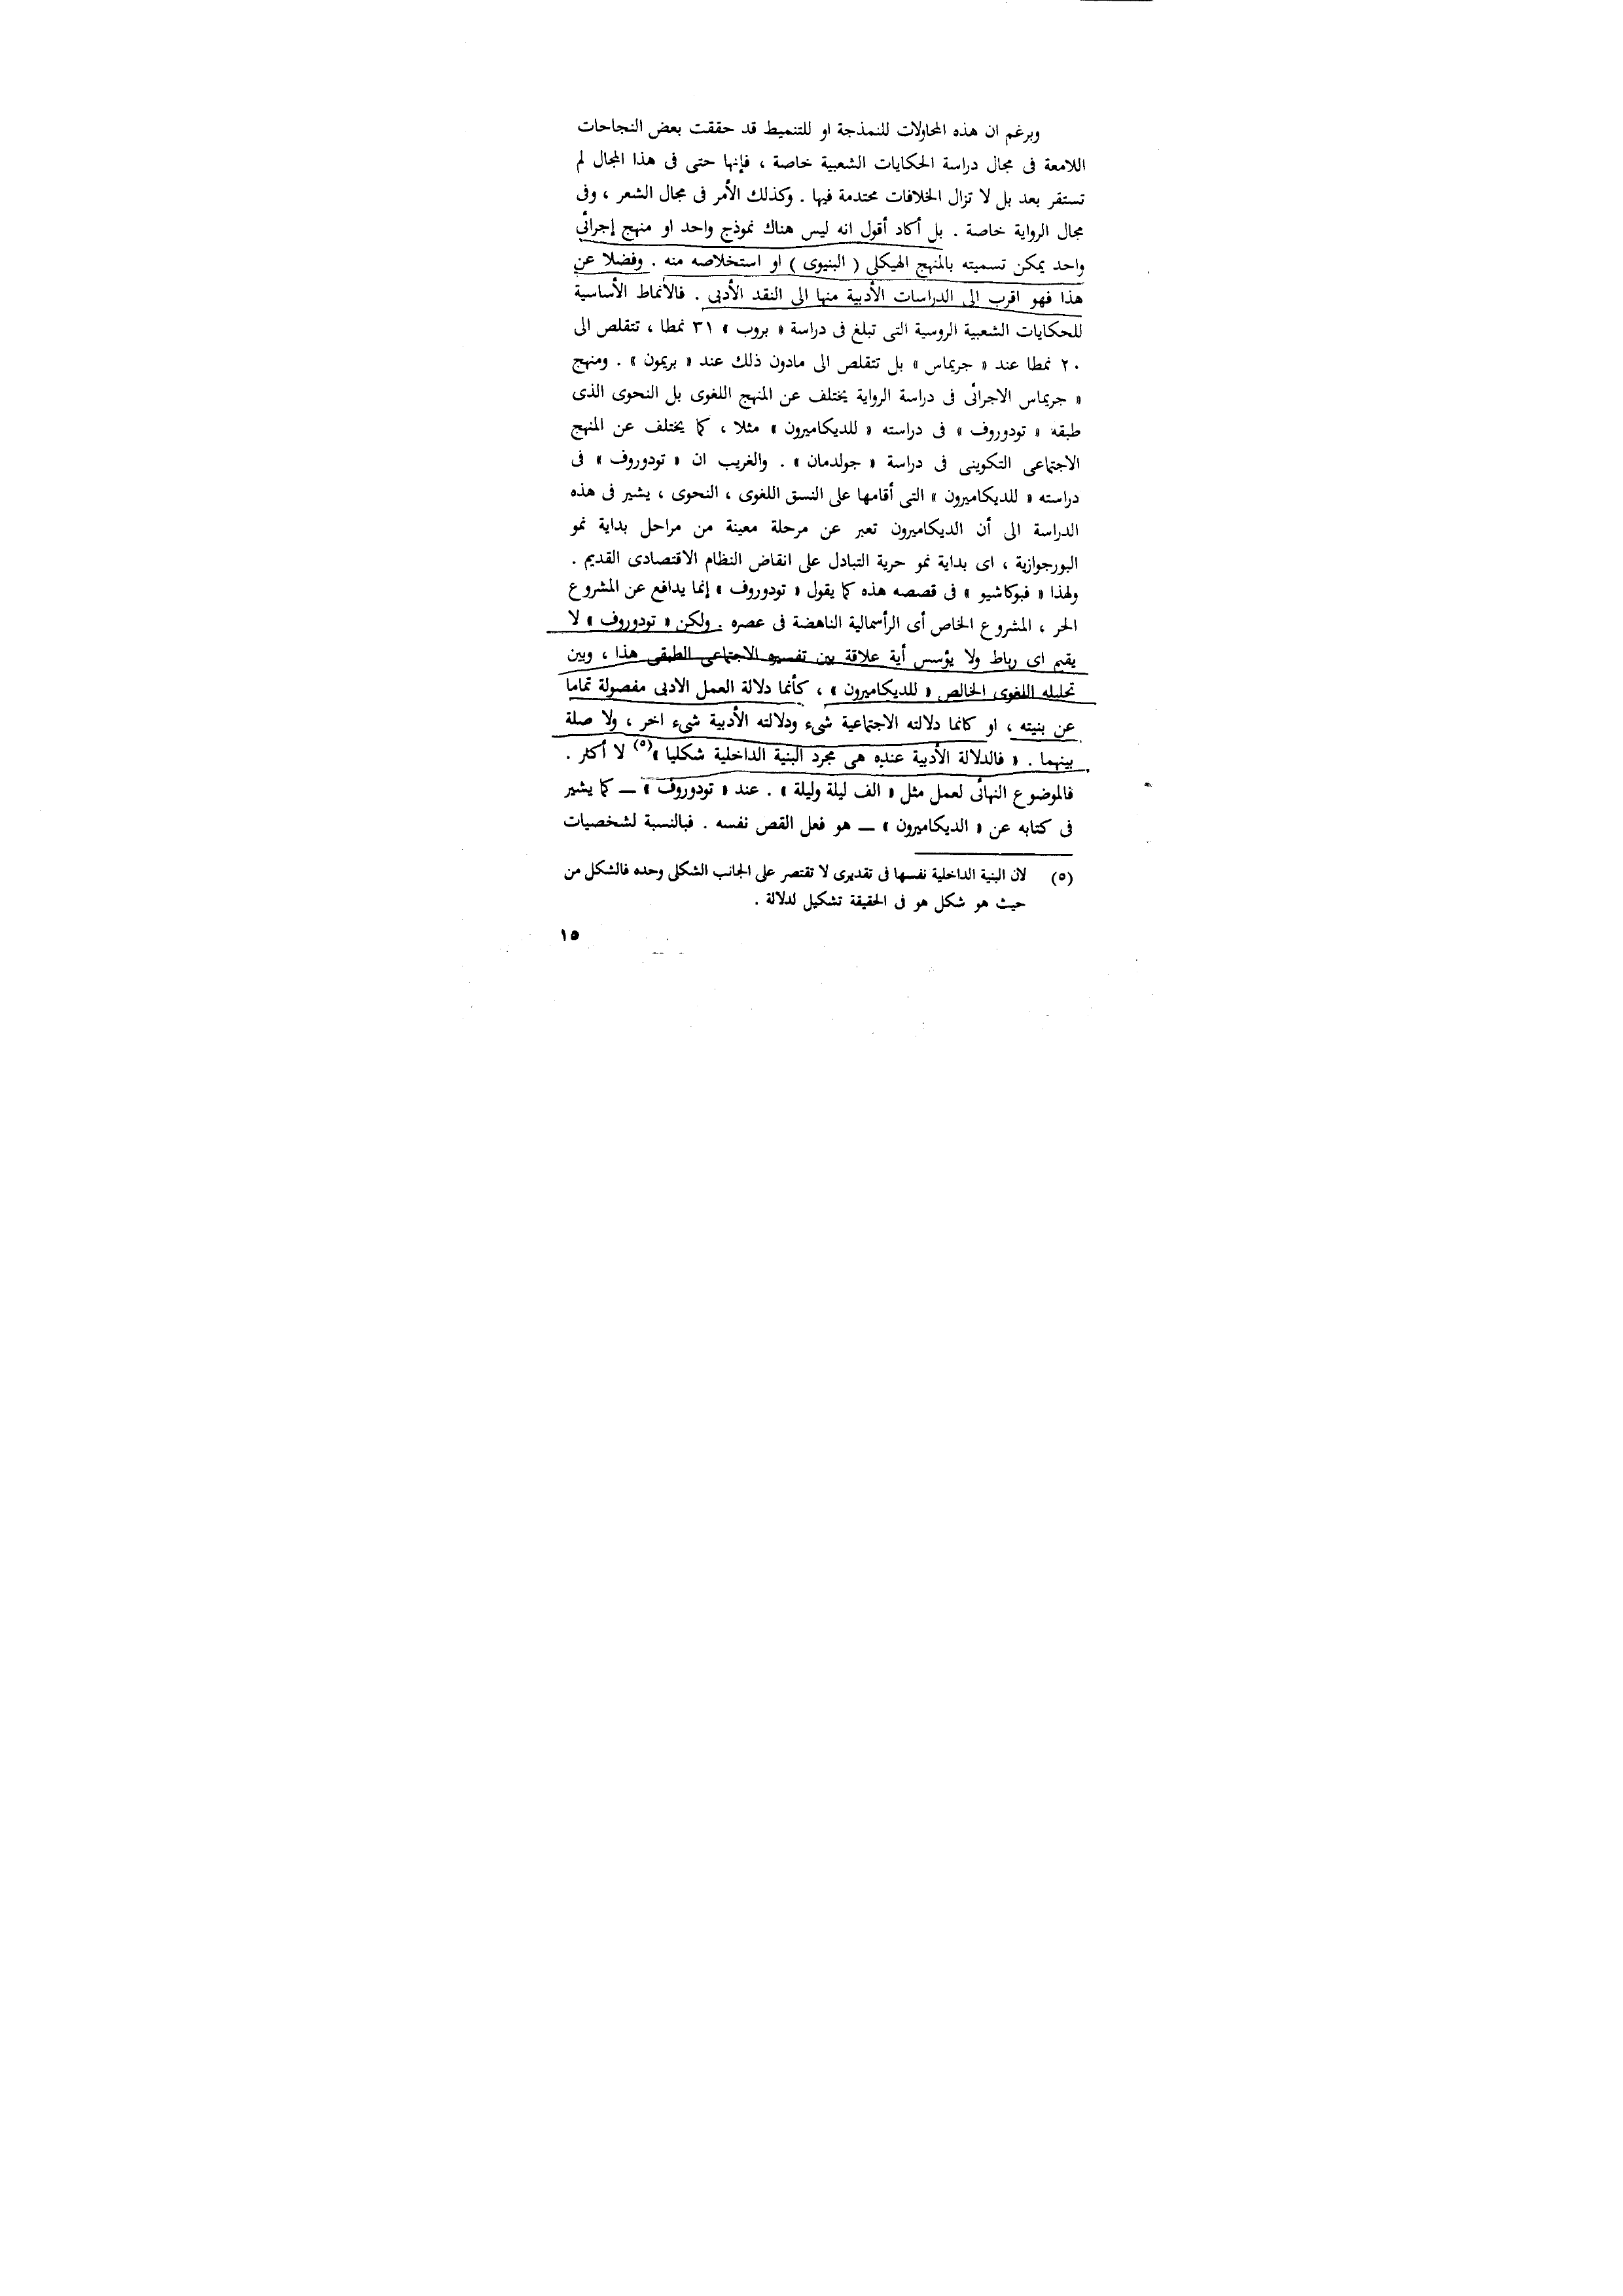 وبرغم ان هذه المحاولات للنمذجة او للتنميط قد حققت بعض النجاحات
اللامعة فى مجال دراسة الحكايات الشعبية خاصة ، فإنها حتى فى هذا المجال لم
تستقر بعد بل لا تزال الخلافات محتدمة فيها . وكذلك الأمر فى مجال الشعر ، وفى
مجال الرواية خاصة . بل أكاد أقول انه ليس هناك نموذج واحد او منهج إجرائى
واحد يمكن تسميته بالمنهج الهيكلى ( البنيوى ) او استخلاصه منه . وفضلا عن
هذا فهو اقرب الى الدراسات الأدبية منها الى النقد الأدبى . فالأنماط الأساسية
للحكايات الشعبية الروسية التى تبلغ فى دراسة « بروب » ٣١ نمطا ، تتقلص الى
٢٠ نمطا عند « جريماس » بل تتقلص الى مادون ذلك عند « بريمون » . ومنهج
« جريماس الاجرائى فى دراسة الرواية يختلف عن المنهج اللغوى بل النحوى الذى
طبقه « تودوروف » فى دراسته « للديكاميرون » مثلا ، كما يختلف عن المنهج
الاجتماعى التكوينى فى دراسة « جولدمان » . والغريب ان « تودوروف » فى
دراسته « للديكاميرون » التى أقامها على النسق اللغوى ، النحوى ، يشير فى هذه
الدراسة الى أن الديكاميرون تعبر عن مرحلة معينة من مراحل بداية نمو
البورجوازية ، اى بداية نمو حرية التبادل على انقاض النظام الاقتصادى القديم .
ولهذا « فبوكاشيو » فى قصصه هذه كما يقول « تودوروف » إنما يدافع عن المشروع
الحر ، المشروع الخاص أى الرأسمالية الناهضة فى عصره . ولكن « تودوروف » لا
يقيم اى رباط ولا يؤسس أية علاقة بين تفسيره الاجتماعى الطبقى هذا ، وبين
تحليله اللغوى الخالص « للديكاميرون » ، كأنما دلالة العمل الادبى مفصولة تماما
عن بنيته ، او كانما دلالته الاجتماعية شىء ودلالته الأدبية شىء اخر ، ولا صلة
بينهما . « فالدلالة الأدبية عنده هى مجرد البنية الداخلية شكليا »(٥) لا أكثر .
فالموضوع النهائى لعمل مثل « الف ليلة وليلة » . عند « تودوروف » — كما يشير
فى كتابه عن « الديكاميرون » — هو فعل القص نفسه . فبالنسبة لشخصيات
(٥) لان البنية الداخلية نفسها فى تقديرى لا تقتصر على الجانب الشكلى وحده فالشكل من
حيث هو شكل هو فى الحقيقة تشكيل لدلالة .
١٥